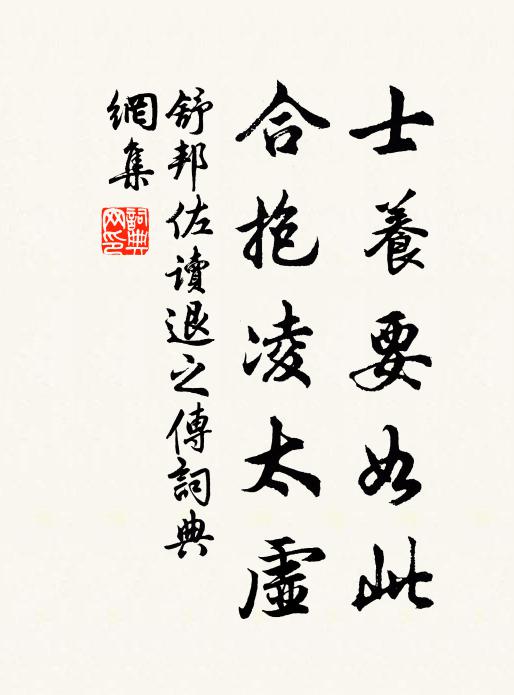 士養要如此
合抱凌太虛
舒邦佐讀退之傳詞典
網集
詞典
网印